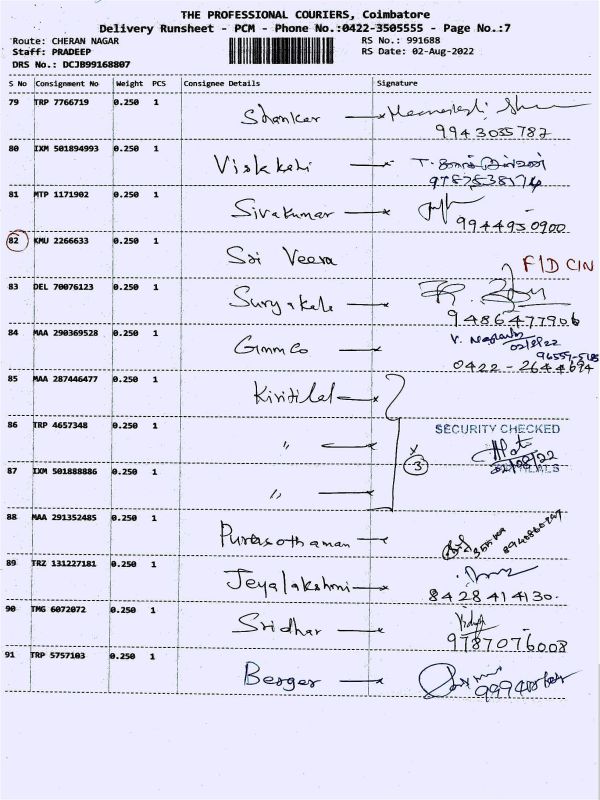 THE PROFESSIONAL COURIERS, Coimbatore
Delivery Runsheet - PCM - Phone No.:0422-3505555 - Page No.:7
Route: CHERAN NAGAR RS No.: 991688
Staff: PRADEEP RS Date: 02-Aug-2022
DRS No.: DCJB99168807
S No Consignment No Weight PCS Consignee Details Signature
79 TRP 7766719 0.250 1 Shankar
9943035782
80 IXM 501894993 0.250 1 Viskakshi
9787538174
81 MTP 1171902 0.250 1 Sivakumar
9944950900
82 KMU 2266633 0.250 1 Sri Veera F/D C/N
83 DEL 70076123 0.250 1 Suryakala
9486477906
84 MAA 290369528 0.250 1 Gmm Co
02/8/22
0422-2644694
85 MAA 287446477 0.250 1 Kiritilal
86 TRP 4657348 0.250 1 " SECURITY CHECKED
3
02/08/22
87 IXM 501888886 0.250 1 "
88 MAA 291352485 0.250 1 Purusothaman
89 TRZ 131227181 0.250 1 Jeyalakshmi
8428414130.
90 TMG 6072072 0.250 1 Sridhar
9787076008
91 TRP 5757103 0.250 1 Berger